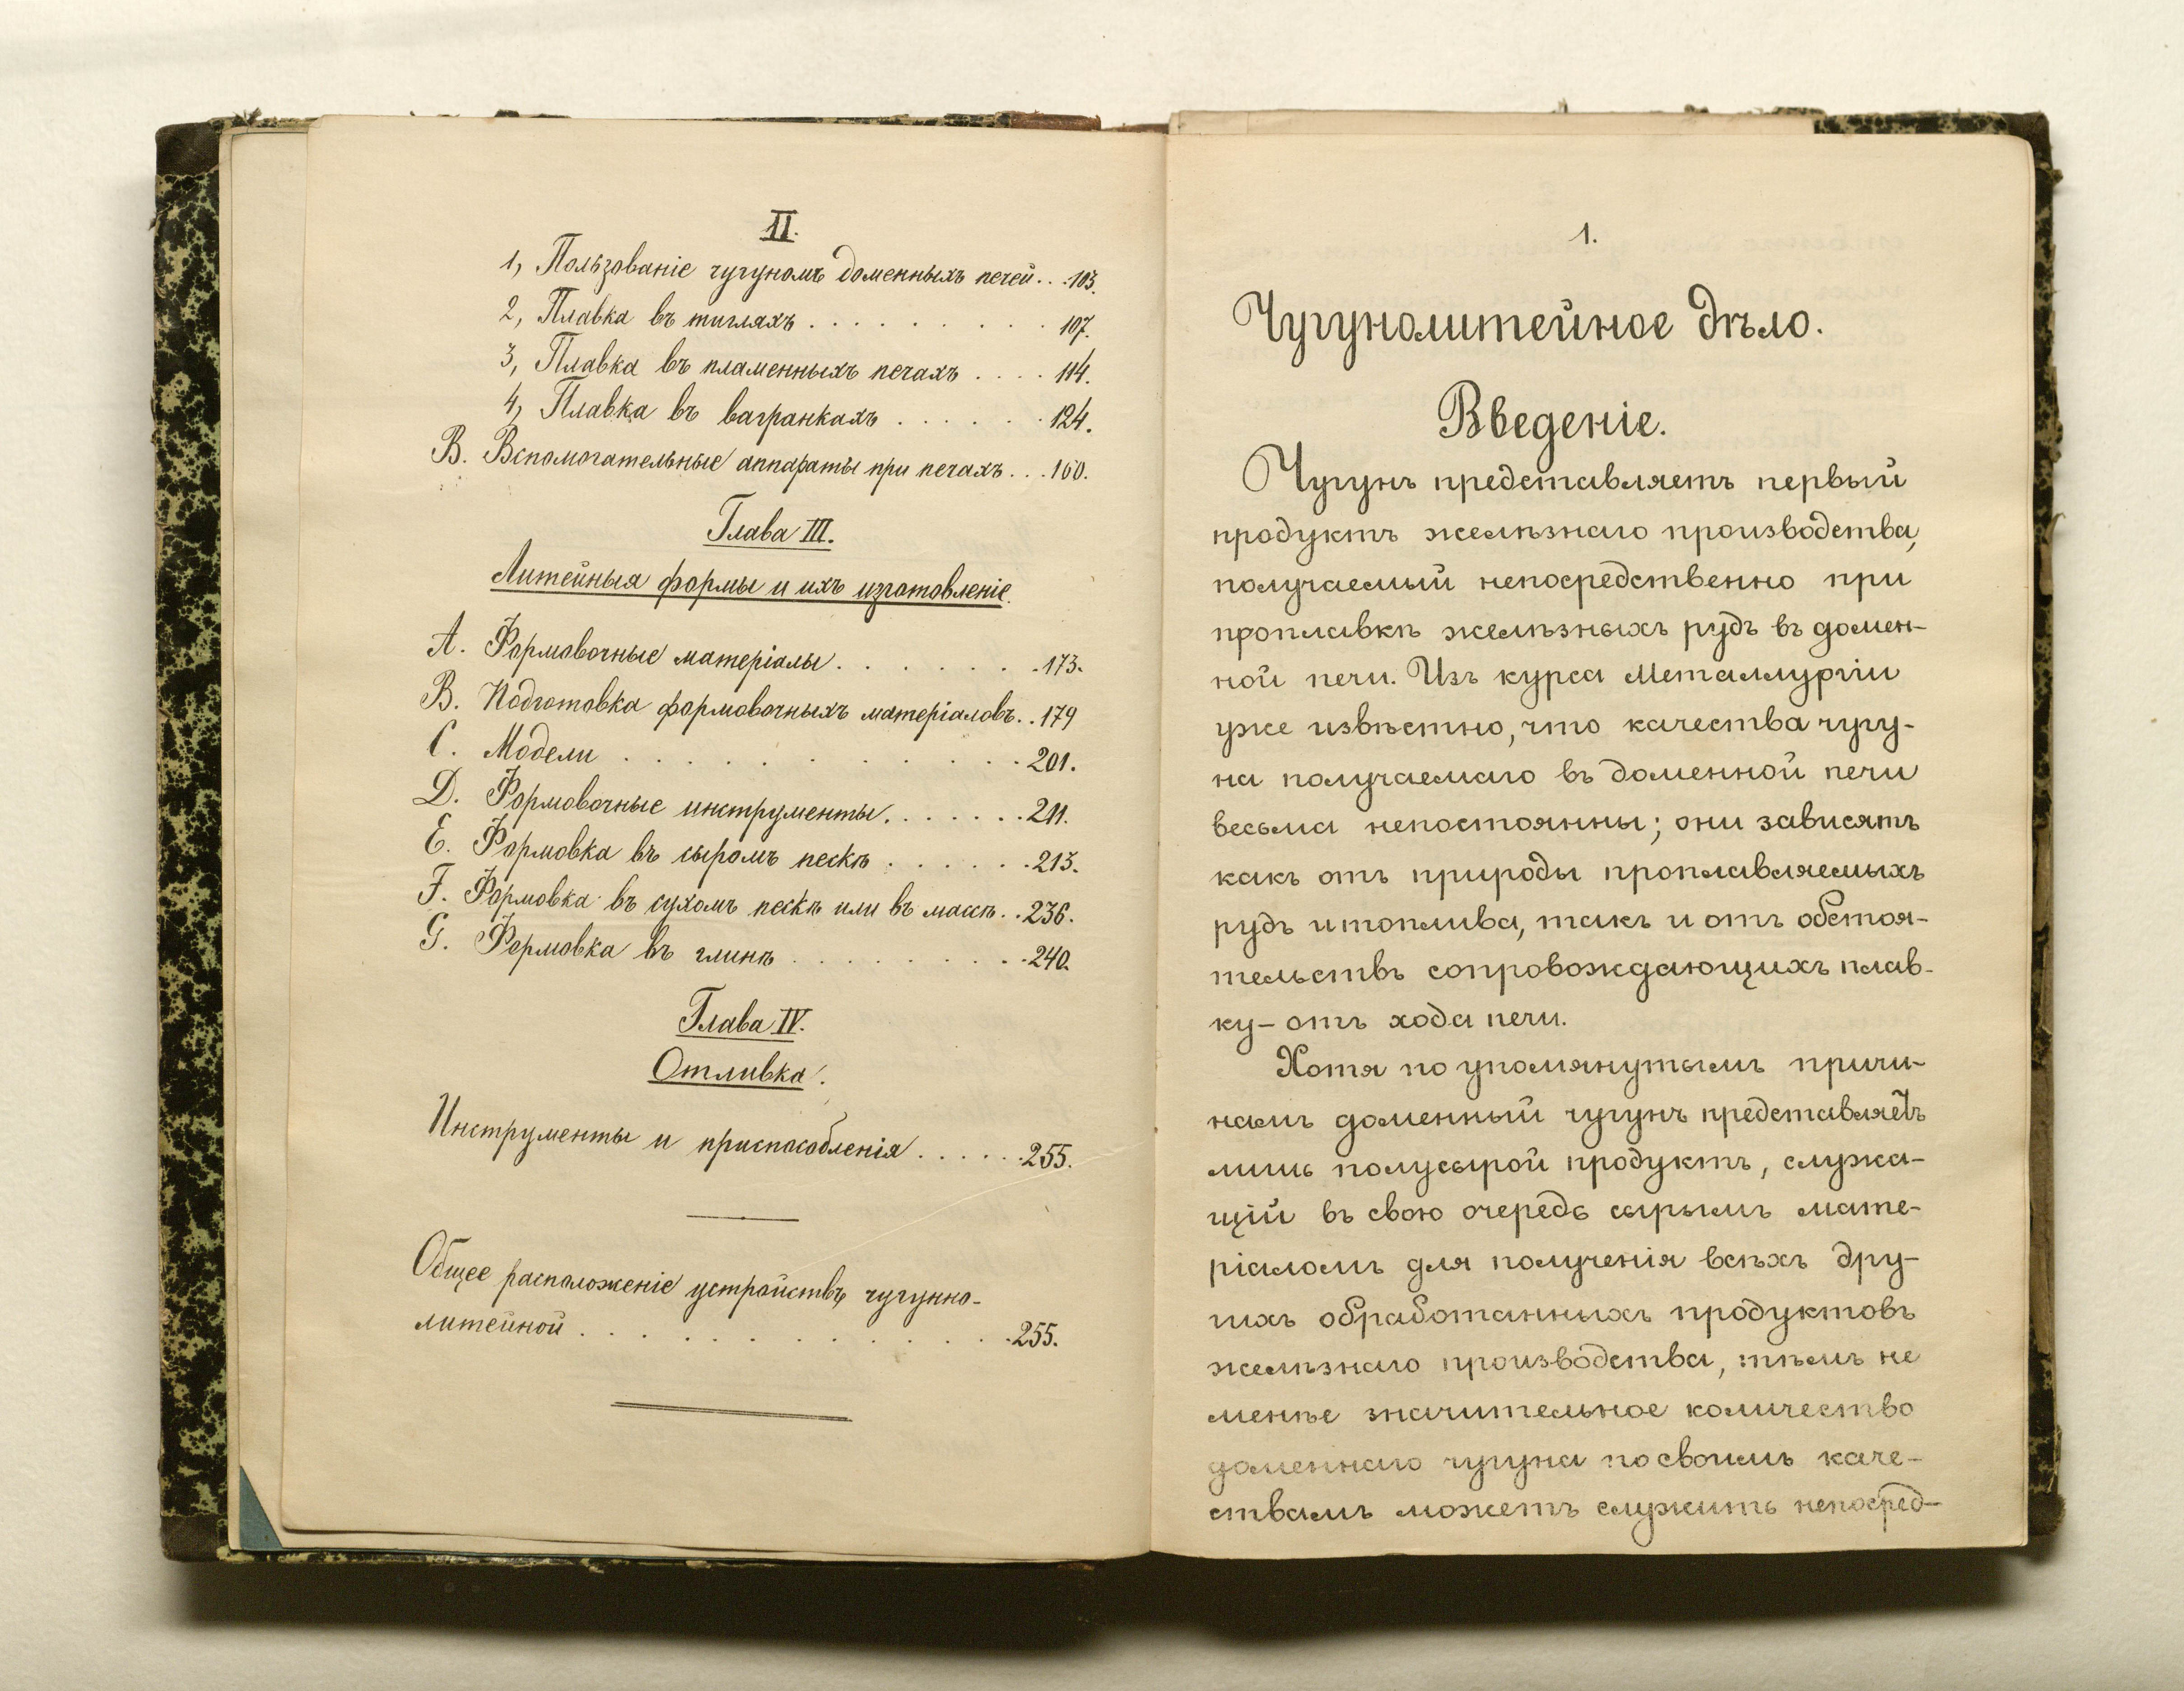 II.
1, Пользованіе чугуномъ доменныхъ печей. . .103.
2, Плавка въ тигляхъ . . . . . . . . . 107.
3, Плавка въ пламенныхъ печахъ . . . . 114.
4, Плавка въ вагранкахъ . . . . . . 124.
B. Вспомогательные аппараты при печахъ. . .160.
Глава III.
Литейныя формы и ихъ изготовленіе.
A. Формовочные матеріалы. . . . . . . .173.
B. Подготовка формовочныхъ матеріаловъ. .179
C. Модели . . . . . . . . . . 201.
D. Формовочные инструменты. . . . . . .211.
E. Формовка въ сыромъ пескѣ . . . . . .213.
F. Формовка въ сухомъ пескѣ или въ массѣ. .236.
G. Формовка въ глинѣ . . . . . . . . .240.
Глава IV.
Отливка.
Инструменты и приспособленія. . . . . .255.
Общее расположеніе устройствъ чугунно-
литейной. . . . . . . . . . . . .255.
1.
Чугунолитейное дѣло.
Введеніе.
Чугунъ представляетъ первый
продуктъ желѣзнаго производства,
получаемый непосредственно при
проплавкѣ желѣзныхъ рудъ въ домен-
ной печи. Изъ курса Металлургіи
уже извѣстно, что качества чугу-
на получаемаго въ доменной печи
весьма непостоянны; они зависятъ
какъ отъ природы проплавляемыхъ
рудъ и топлива, такъ и отъ обстоя-
тельствъ сопровождающихъ плав-
ку- отъ хода печи.
Хотя по упомянутымъ причи-
намъ доменный чугунъ представляетъ
лишь полусырой продуктъ, служа-
щій въ свою очередь сырымъ мате-
ріаломъ для полученія всѣхъ дру-
гихъ обработанныхъ продуктовъ
желѣзнаго производства, тѣмъ не
менѣе значительное количество
доменнаго чугуна по своимъ каче-
ствамъ можетъ служить непосред-